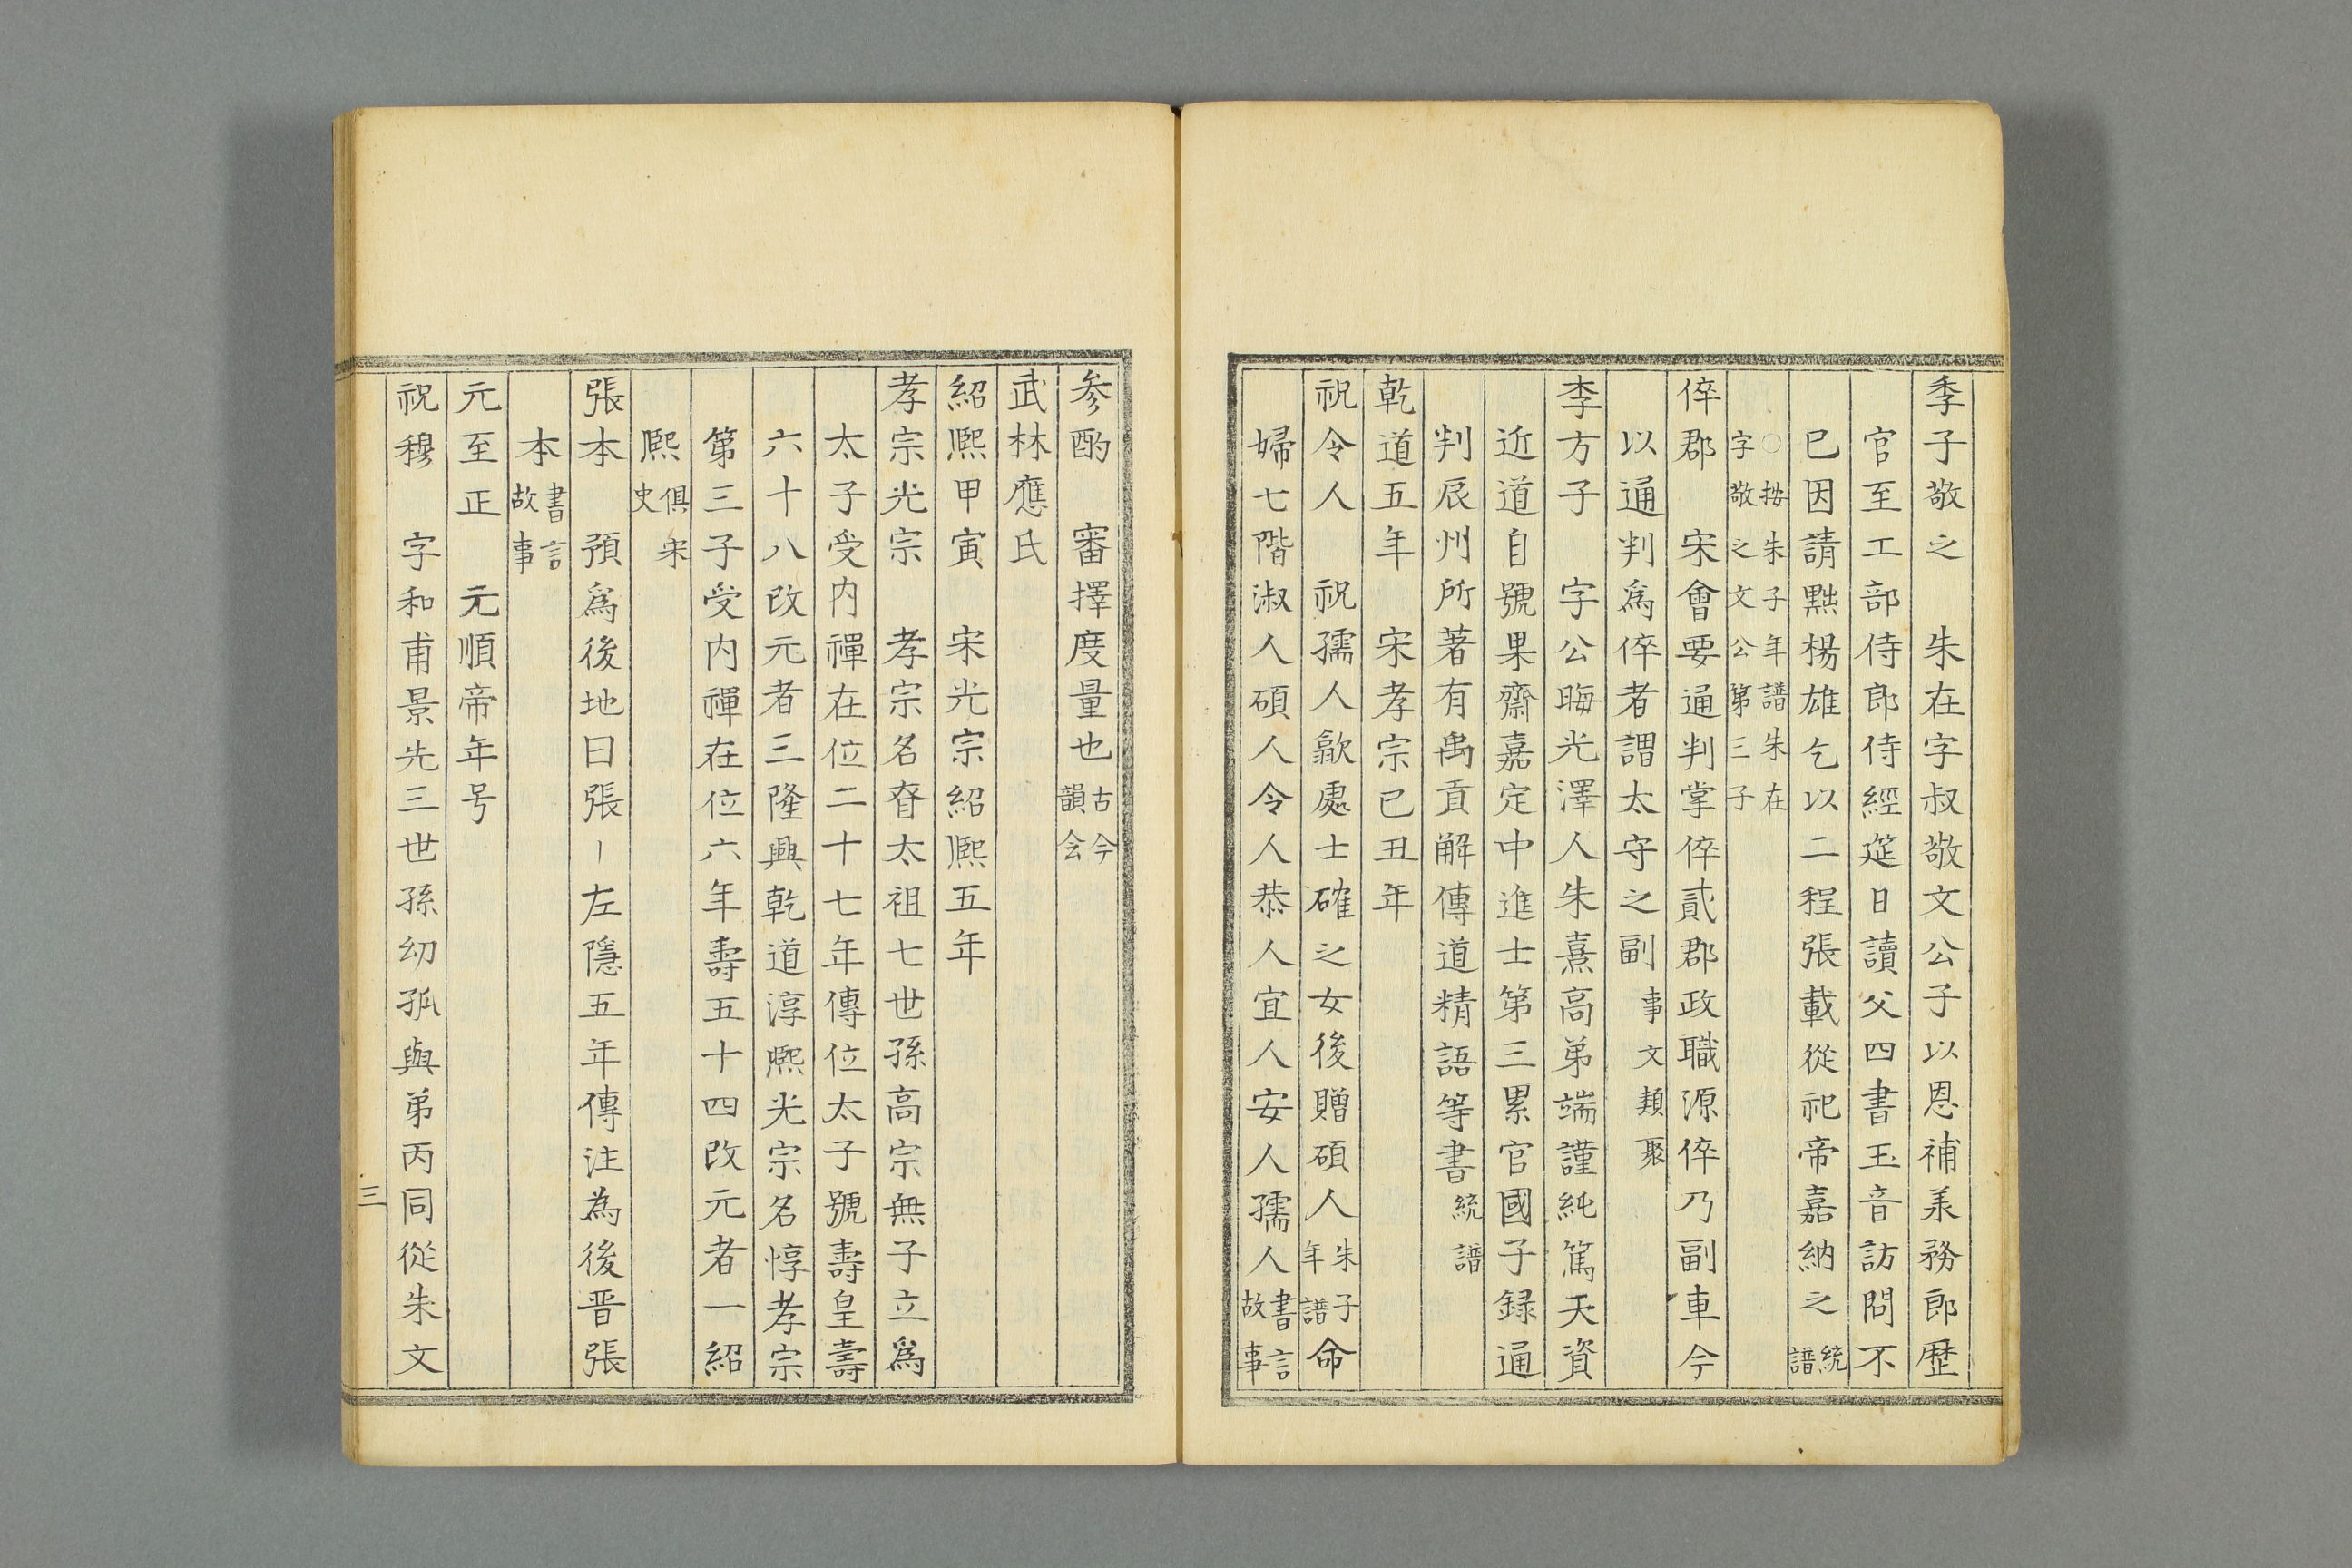 季子敬之　朱在字叔敬文公子以恩補羕務郎歴
官至工部侍郎侍經筵日讀父四書玉音訪問不
已因請黜楊雄乞以二程張載從祀帝嘉納之統譜
〇按朱子年譜朱在字敬之文公第三子
倅郡　宋會要通判掌倅貳郡政職源倅乃副車今
以通判爲倅者謂太守之副事文類聚
李方子　字公晦光澤人朱熹高弟端謹純篤天資
近道自號果齋嘉定中進士第三累官國子録通
判辰州所著有禹貢解傳道精語等書統譜
乾道五年　宋孝宗己丑年
祝令人　祝孺人歙處士確之女後贈碩人朱子年譜命
婦七階淑人碩人令人恭人宜人安人孺人書言故事
参酌　審擇度量也古今韻会
武林應氏
紹熈甲寅　宋光宗紹熈五年
孝宗光宗　孝宗名眘太祖七世孫高宗無子立爲
太子受内禪在位二十七年傳位太子號壽皇壽
六十八改元者三隆興乾道淳熈光宗名惇孝宗
第三子受内禪在位六年壽五十四改元者一紹
熈俱宋史
張本　預爲後地曰張〡左隱五年傳注為後晋張
本書言故事
元至正　元順帝年号
祝穆　字和甫景先三世孫幼孤與弟丙同從朱文
三